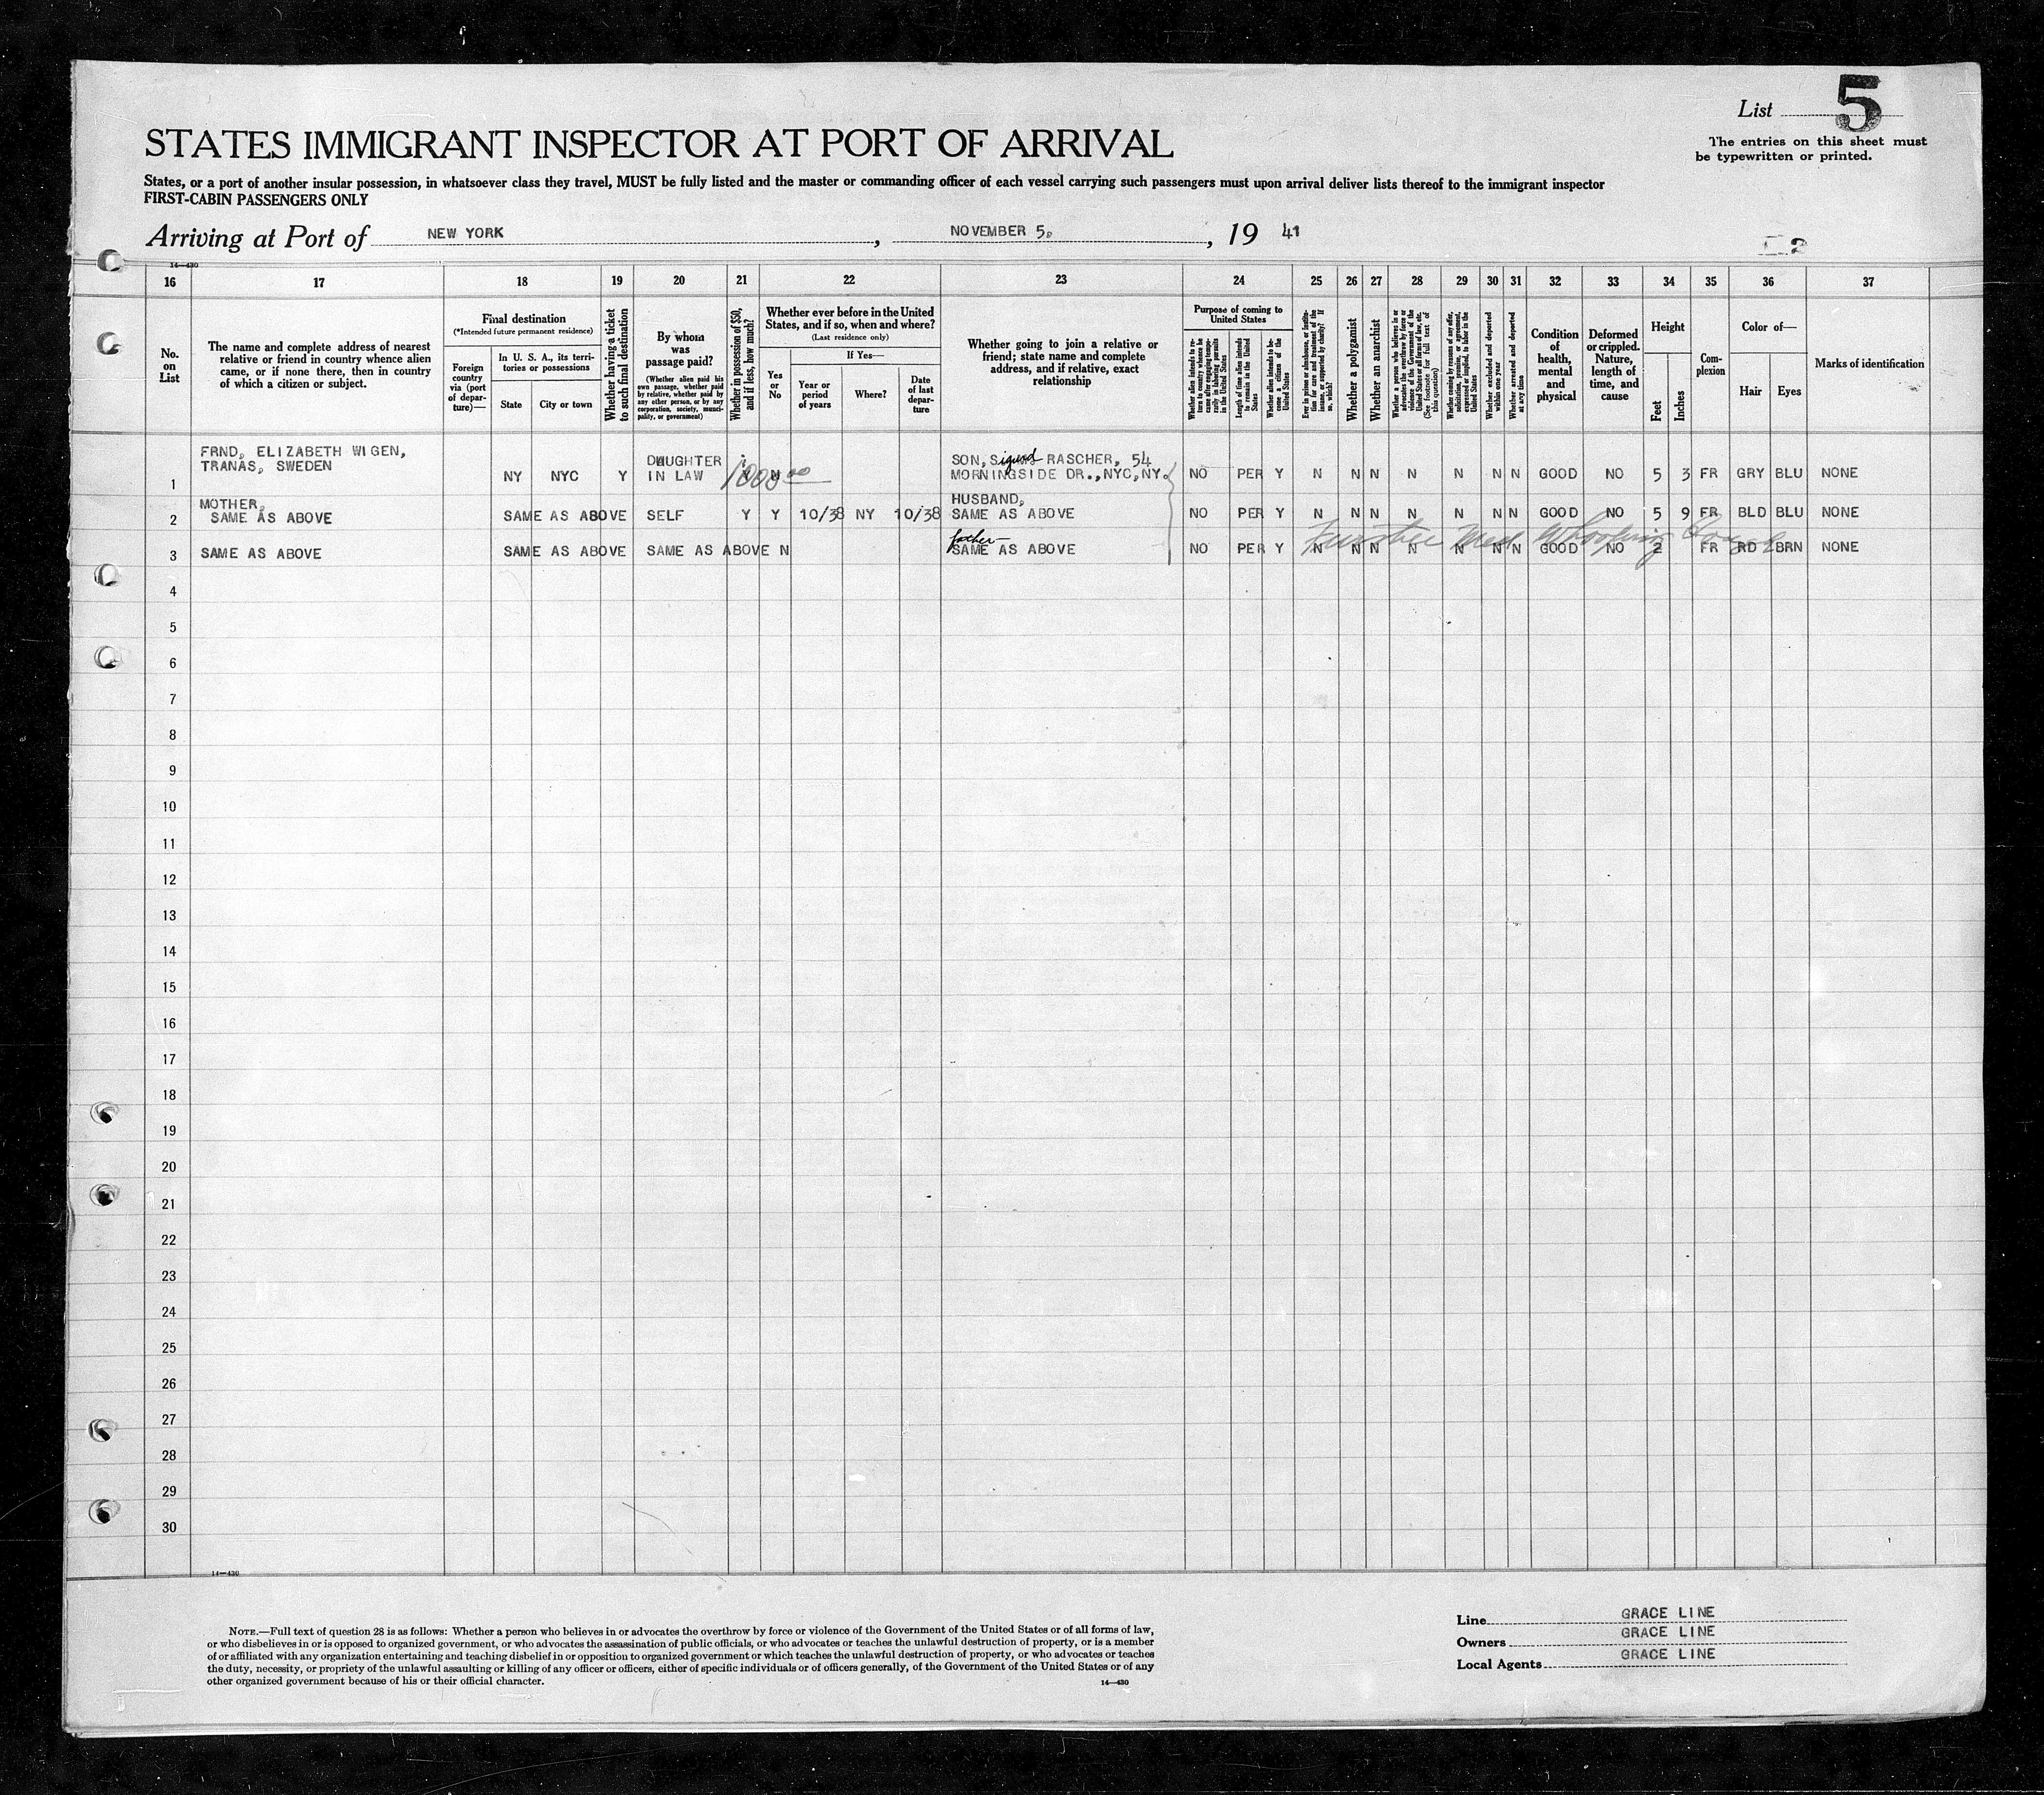 List 5
The entries on this sheet must
be typewritten or printed.
STATES IMMIGRANT INSPECTOR AT PORT OF ARRIVAL
States, or a port of another insular possession, in whatsoever class they travel, MUST be fully listed and the master or commanding officer of each vessel carrying such passengers must upon arrival deliver lists thereof to the immigrant inspector
FIRST-CABIN PASSENGERS ONLY
Arriving at Port of NEW YORK, NOVEMBER 5, 19 41
2
14—430
16 17 18 19 20 21 22 23 24 25 26 27 28 29 30 31 32 33 34 35 36 37
No.
on
List
The name and complete address of nearest
relative or friend in country whence alien
came, or if none there, then in country
of which a citizen or subject.
Final destination
(*Intended future permanent residence)
Foreign
country
via (port
of depar-
ture)—
In U. S. A., its terri-
tories or possessions
State
City or town
Whether having a ticket
to such final destination
By whom
was
passage paid?
(Whether alien paid his
own passage, whether paid
by relative, whether paid by
any other person, or by any
corporation, society, munici-
pality, or government)
Whether in possession of $50,
and if less, how much?
Whether ever before in the United
States, and if so, when and where?
(Last residence only)
Yes
or
No
If Yes—
Year or
period
of years
Where?
Date
of last
depar-
ture
Whether going to join a relative or
friend; state name and complete
address, and if relative, exact
relationship
Purpose of coming to
United States
Whether alien intends to re-
turn to country whence he
came after engaging tempo-
rarily in laboring pursuits
in the United States
Length of time alien intends
to remain in the United
States
Whether alien intends to be-
come a citizen of the
United States
Ever in prison or almshouse, or institu-
tion for care and treatment of the
insane, or supported by charity? If
so, which?
Whether a polygamist
Whether an anarchist
Whether a person who believes in or
advocates the overthrow by force or
violence of the Government of the
United States or all forms of law, etc.
(See footnote for full text of
this question)
Whether coming by reasons of any offer,
solicitation, promise, or agreement,
expressed or implied, to labor in the
United States
Whether excluded and deported
within one year
Whether arrested and deported
at any time
Condition
of
health,
mental
and
physical
Deformed
or crippled.
Nature,
length of
time, and
cause
Height
Feet
Inches
Com-
plexion
Color of—
Hair
Eyes
Marks of identification
FRND, ELIZABETH WIGEN,
TRANAS, SWEDEN
DAUGHTER
SON, Sigurd RASCHER, 54
1 NY NYC Y IN LAW 1000.00 N MORNINGSIDE DR., NYC, NY. NO PER Y N N N N N N N GOOD NO 5 3 FR GRY BLU NONE
MOTHER,
HUSBAND,
2 SAME AS ABOVE SAME AS ABOVE SELF Y Y 10/38 NY 10/38 SAME AS ABOVE NO PER Y N N N N N N N GOOD NO 5 9 FR BLD BLU NONE
father
3 SAME AS ABOVE SAME AS ABOVE SAME AS ABOVE N SAME AS ABOVE NO PER Y N N N N N N N GOOD NO 2 FR RD BRN NONE
Med Whooping Cough
4
5
6
7
8
9
10
11
12
13
14
15
16
17
18
19
20
21
22
23
24
25
26
27
28
29
30
14—430
NOTE.—Full text of question 28 is as follows: Whether a person who believes in or advocates the overthrow by force or violence of the Government of the United States or of all forms of law,
or who disbelieves in or is opposed to organized government, or who advocates the assassination of public officials, or who advocates or teaches the unlawful destruction of property, or is a member
of or affiliated with any organization entertaining and teaching disbelief in or opposition to organized government or which teaches the unlawful destruction of property, or who advocates or teaches
the duty, necessity, or propriety of the unlawful assaulting or killing of any officer or officers, either of specific individuals or of officers generally, of the Government of the United States or of any
other organized government because of his or their official character.
14—430
Line GRACE LINE
Owners GRACE LINE
Local Agents GRACE LINE